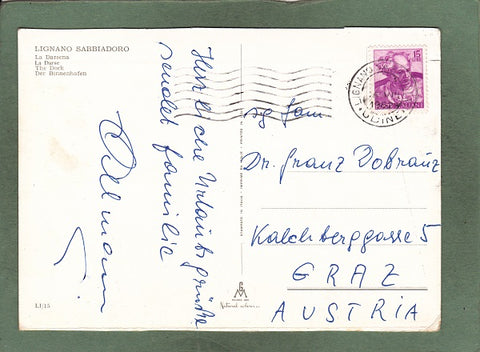 LIGNANO SABBIADORO
La Darsena
La Darse
The Dock
Der Binnenhafen
Herzliche Urlaubsgrüße
sendet Familie
LI/15
LIGNANO
UDINE
15
Fam
Dr. Franz Dobranz
Kalchberggasse 5
GRAZ
AUSTRIA